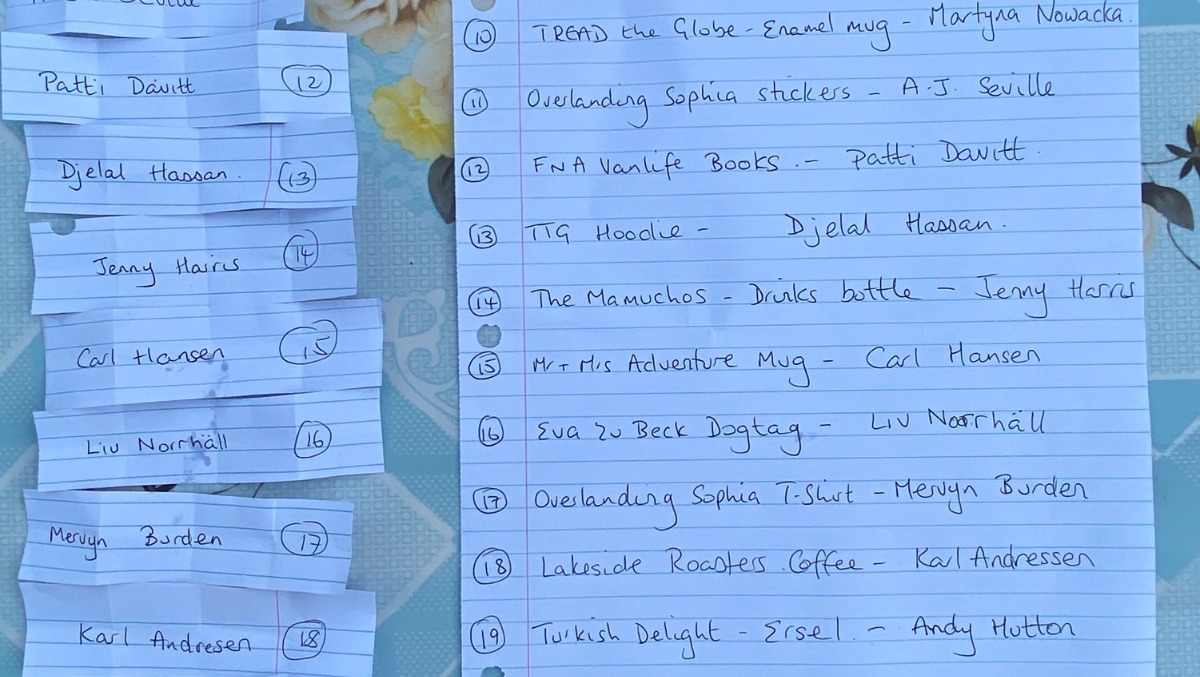 Patti Davitt 12
Djelal Hassan. 13
Jenny Harris 14
Carl Hansen 15
Liv Norrhäll 16
Mervyn Burden 17
Karl Andresen 18
10 TREAD the Globe - Enamel mug - Martyna Nowacka.
11 Overlanding Sophia stickers - A.J. Seville
12 FNA Vanlife Books. - Patti Davitt.
13 TTG Hoodie - Djelal Hassan.
14 The Mamuchos - Drinks bottle - Jenny Harris
15 Mr + Mrs Adventure Mug - Carl Hansen
16 Eva zu Beck Dogtag - Liv Norrhäll
17 Overlanding Sophia T-Shirt - Mervyn Burden
18 Lakeside Roasters Coffee - Karl Andressen
19 Turkish Delight - Ersel. - Andy Hutton